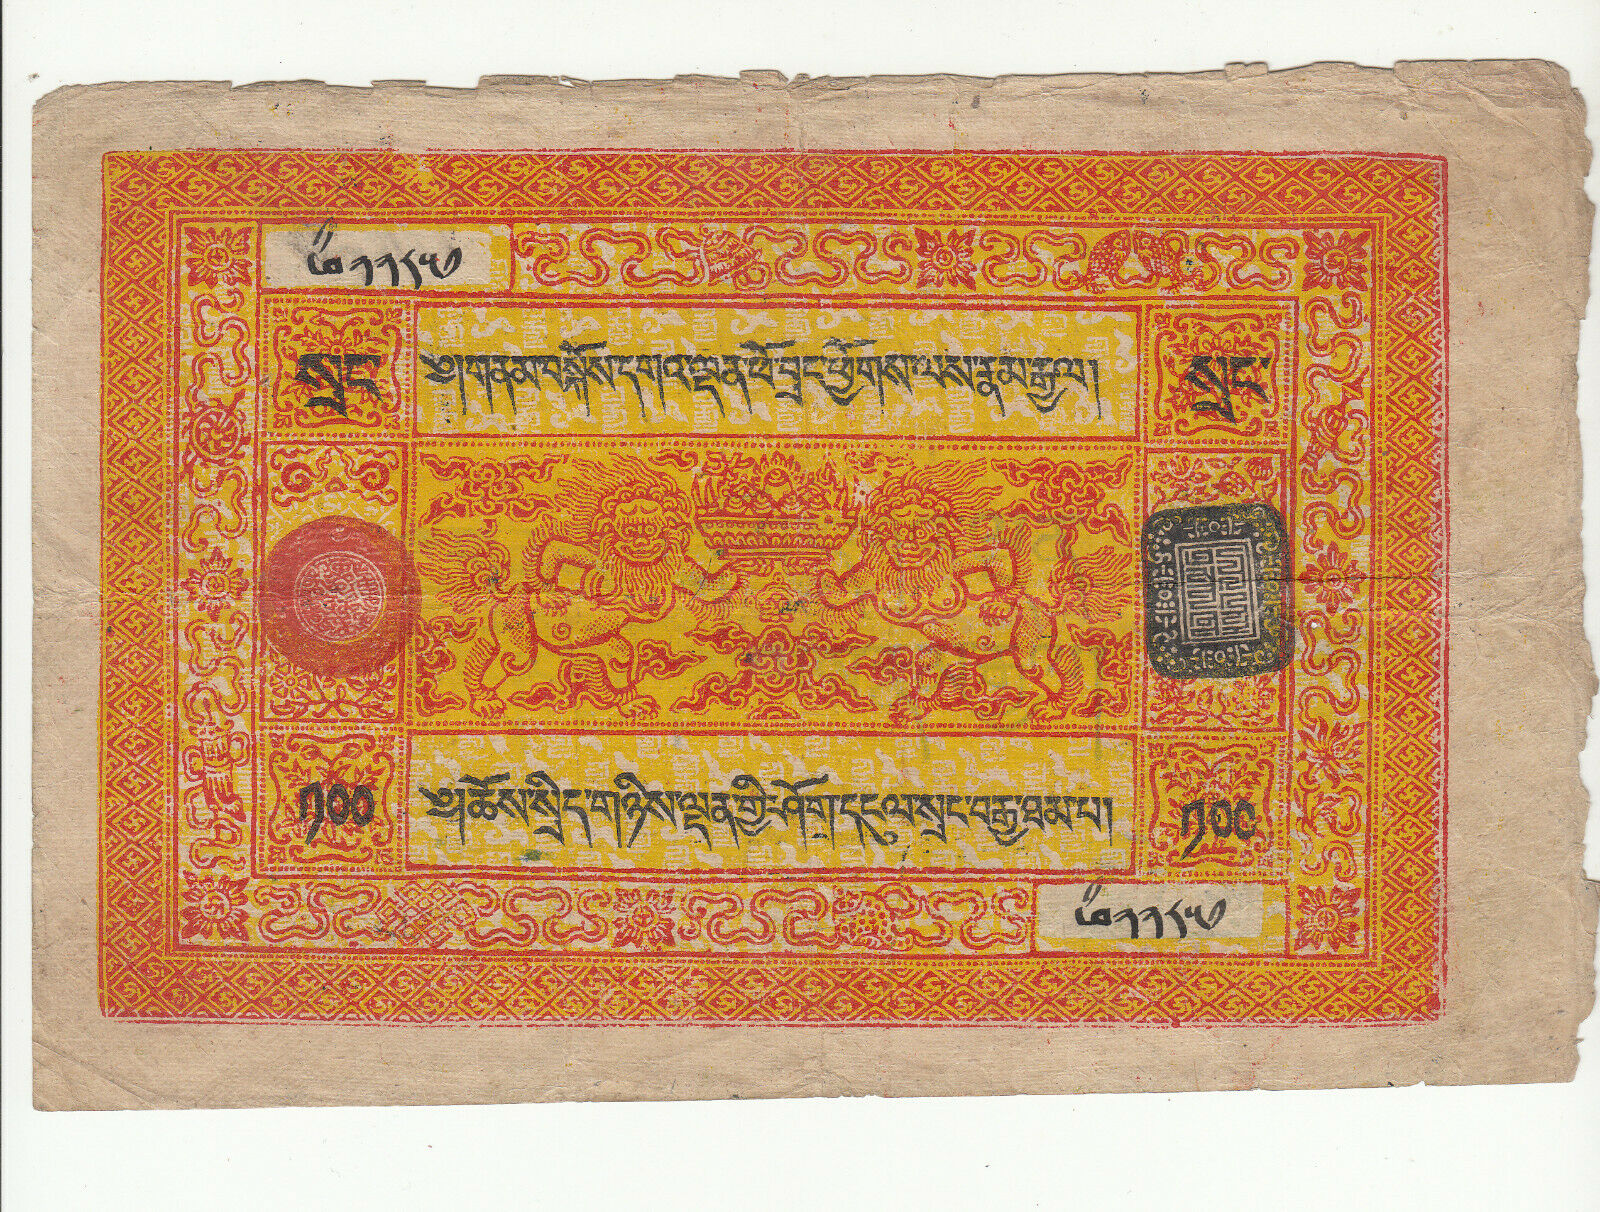 སྲང་ ༄༅།གནམ་བསྐོས་དགའ་ལྡན་ཕོ་བྲང་ཕྱོགས་ལས་རྣམ་རྒྱལ། སྲང་
༡༠༠ ༄༅།ཆོས་སྲིད་གཉིས་ལྡན་གྱི་ཤོག་དངུལ་སྲང་བརྒྱ་ཐམ་པ། ༡༠༠